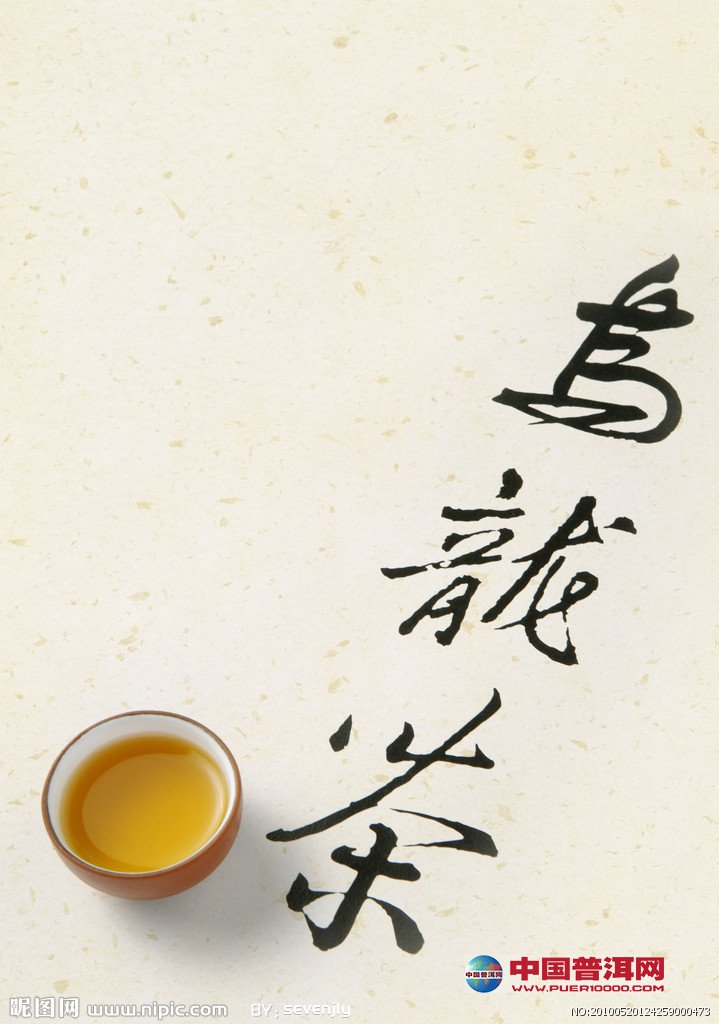 烏
龍
茶
中国普洱网
中国普洱网
WWW.PUER10000.COM
昵图网 www.nipic.com BY: sevenjly
NO:20100520124259000473